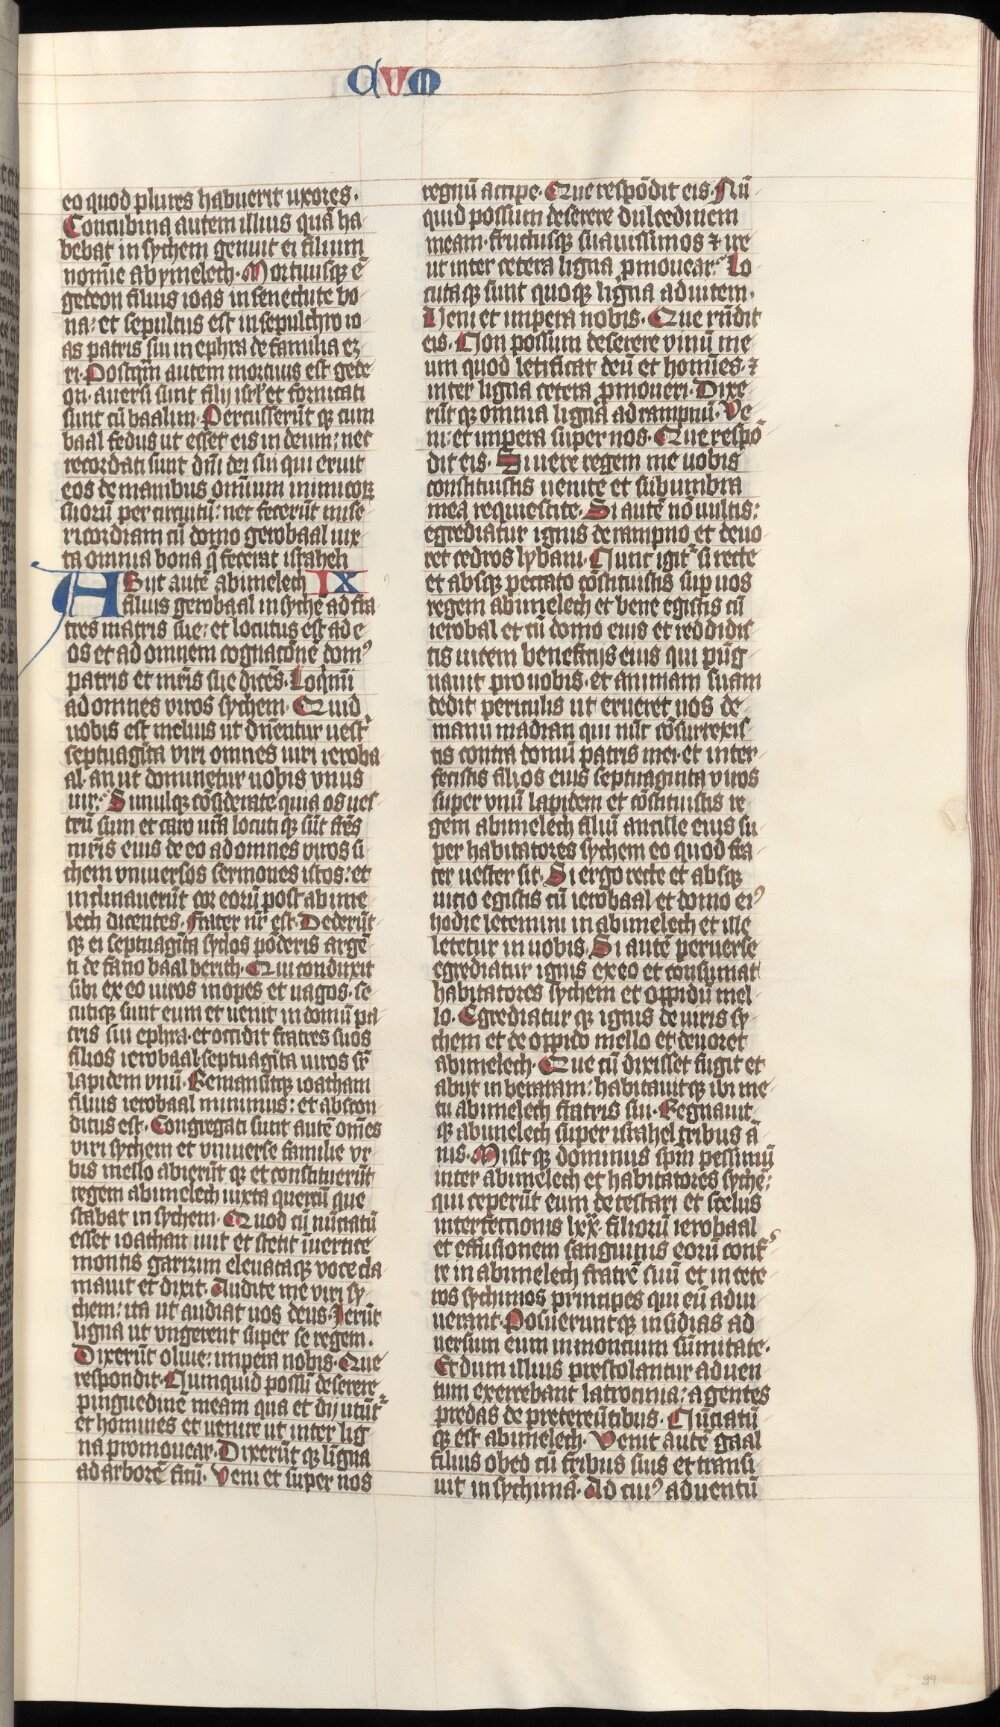 cum
eo quod plures habuerit uxores.
Concubina autem illius quā ha
bebat in sychem genuit ei filium
nomīe abymelech. Mortuusqꝫ ē
gedeon filius ioas in senectute bo
na: et sepultus est in sepulchro io
as patris sui in ephra de familia ez
ri. Postqm̄ autem mortuus est gede
on. auersi sunt filij isrl' et fornicati
sunt cū baalim. Percusserūt qꝫ cum
baal fedus ut esset eis in deum: nec
recordati sunt dn̄i dei sui qui eruit
eos de manibus om̄ium inimicoꝝ
suorū per circuitū: nec fecerūt mise
ricordiam cū domo gerobaal iux
ta omnia bona q̄ fecerat israheli
Abijt autē abimelech IX
filius gerobaal in sychē ad fra
tres matris sue: et locutus est ad e
os et ad omnem cognacōnē domꝰ
patris et mr̄is sue dicēs. Loqm̄i
ad omnes viros sychem. Quid
uobis est melius ut dn̄entur uest͛
septuagīta viri omnes iuri ieroba
al. an ut dominetur uobis vnus
uir. Simulqꝫ cōsiderate quia os ues
trū sum et caro ur̄a locuti qꝫ sūt fr̄es
mr̄is eius de eo ad omnes viros si
chem vniuersos sermones istos: et
inclinauerūt cor eorū post abime
lech dicentes. frater nr̄ est. Dederūt
qꝫ ei septuagīta syclos pōderis argē
ti de fano baal berith. Qui conduxit
sibi ex eo uiros inopes et uagos. se
cutiqꝫ sunt eum et uenit in domū pa
tris sui ephra. et occidit fratres suos
filios ierobaal septuagīta uiros sr̄
lapidem vnū. Remansitqꝫ ioatham
filius ierobaal minimus: et abscon
ditus est. Congregati sunt autē om̄es
viri sychem et vniuerse familie vr
bis mello abierūt qꝫ et constituerūt
regem abimelech iuxta quercū que
stabat in sychem. Quod cū nūciatū
esset ioathan iuit et stetit ī uertice
montis garizim eleuataqꝫ voce cla
mauit et dixit. Audite me viri sy
chem: ita ut audiat uos deus. Ierūt
ligna ut vngerent super se regem.
Dixerūt oliue: impera nobis. Que
respondit. Numquid possū deserere
pinguedinē meam qua et dij utūt͛
et homines et uenire ut inter lig
na promouear. Dixerūt qꝫ ligna
ad arborē ficū. Veni et super nos
regnū accipe. Que respōdit eis. Nū
quid possum deserere dulcedinem
meam. fructusqꝫ suauissimos ⁊ ire
ut inter cetera ligna pmouear. Lo
cutaqꝫ sunt quoqꝫ ligna ad uitem.
Veni et impera nobis. Que rn̄dit
eis. Non possum deserere vinū me
um quod letificat deū et homīes. ⁊
inter ligna cetera pmoueri. Dixe
rūt qꝫ omnia ligna ad rampnū. Ve
ni: et impera super nos. Que respō
dit eis. Si uere regem me uobis
constituistis uenite et sub umbra
mea requiescite. Si autē nō vultis:
egrediatur ignis de rampno et deuo
ret cedros lybani. Nunc igit͛ si recte
et absqꝫ peccato cōstituistis sup uos
regem abimelech et bene egistis cū
ierobal et cū domo eius et reddidis
tis uicem beneficijs eius qui pūg
nauit pro uobis. et animam suam
dedit periculis ut erueret uos de
manu madian qui nūc cōsurrexis
tis contra domū patris mei. et inter
fecistis filios eius septuaginta viros
super vnū lapidem et cōstituistis re
gem abimelech filiū ancille eius su
per habitatores sychem eo quod fra
ter uester sit. Si ergo recte et absqꝫ
uicio egistis cū ierobaal et domo eiꝰ
hodie letemini in abimelech et ille
letetur in uobis. Si autē peruerse
egrediatur ignis ex eo et consumat
habitatores sychem et oppidū mel
lo. Egrediatur qꝫ ignis de viris sy
chem et de oppido mello et deuoret
abimelech. Que cū dixisset fugit et
abijt in beraram: habitauitqꝫ ibi me
tu abimelech fratris sui. Regnauit
qꝫ abimelech super israhel tribus ā
nis. Misit qꝫ dominus spm̄ pessimū
inter abimelech et habitatores sychē:
qui ceperūt eum detestari et scelus
interfectionis lxx. filiorū ierobaal
et effusionem sanguinis eorū conf͛
re in abimelech fratrē suū et in cete
ros sychimos principes qui eū adiu
uerant. Posueruntqꝫ insidias ad
uersum eum in montium sūmitate.
Et dum illius prestolantur aduen
tum exercebant latrocinia: agentes
predas de pretereūtibus. Nūciatū
qꝫ est abimelech. Venit autē gaal
filius obed cū fribus suis et transi
uit in sychimā. Ad cuiꝰ aduentū
94